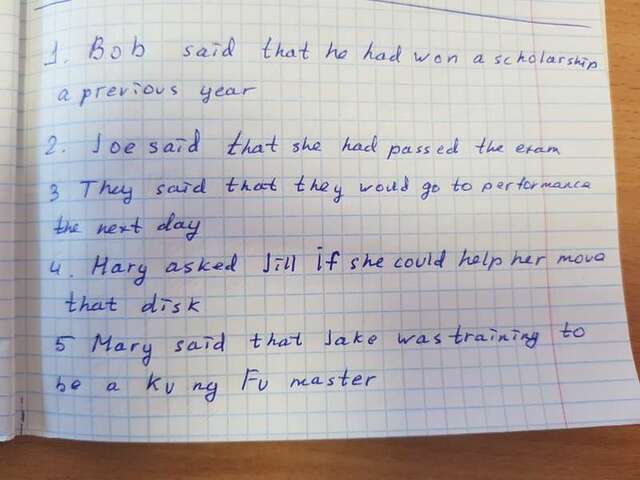 1. Bob said that he had won a scholarship
a previous year
2. Joe said that she had passed the exam
3 They said that they would go to performance
the next day
4. Mary asked Jill if she could help her move
that disk
5 Mary said that Jake was training to
be a Kung Fu master